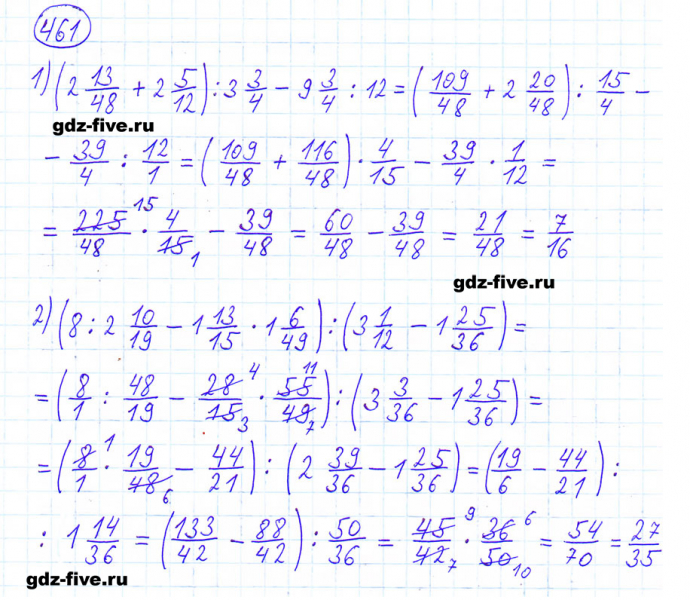 461
1) (2 13/48 + 2 5/12) : 3 3/4 − 9 3/4 : 12 = (109/48 + 2 20/48) : 15/4 −
gdz-five.ru
− 39/4 : 12/1 = (109/48 + 116/48) · 4/15 − 39/4 · 1/12 =
= 225/48 15 · 4/15 1 − 39/48 = 60/48 − 39/48 = 21/48 = 7/16
gdz-five.ru
2) (8 : 2 10/19 − 1 13/15 · 1 6/49) : (3 1/12 − 1 25/36) =
= (8/1 : 48/19 − 28/15 4 3 · 55/49 11 7) : (3 3/36 − 1 25/36) =
= (8/1 1 · 19/48 6 − 44/21) : (2 39/36 − 1 25/36) = (19/6 − 44/21) :
: 1 14/36 = (133/42 − 88/42) : 50/36 = 45/42 9 7 · 36/50 6 10 = 54/70 = 27/35
gdz-five.ru